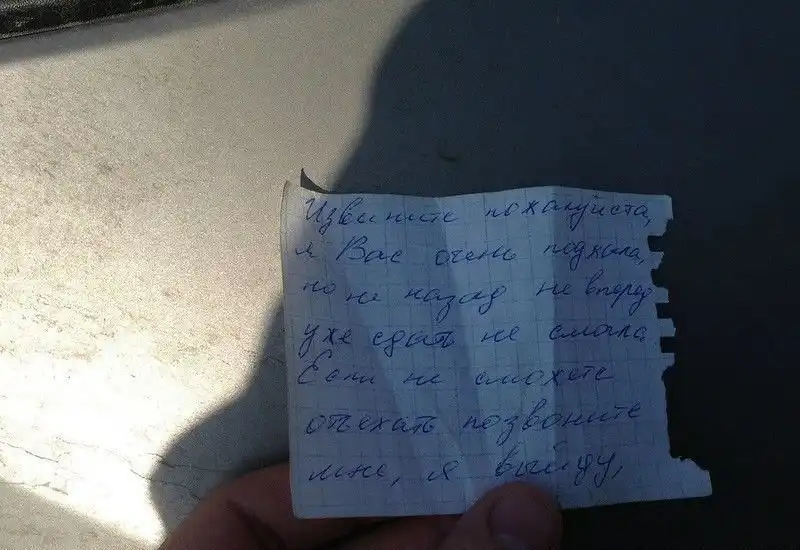 Извините пожалуйста,
я Вас очень поджала,
но не назад не вперед
уже сдать не смогла
Если не сможете
отъехать позвоните
мне, я выйду,